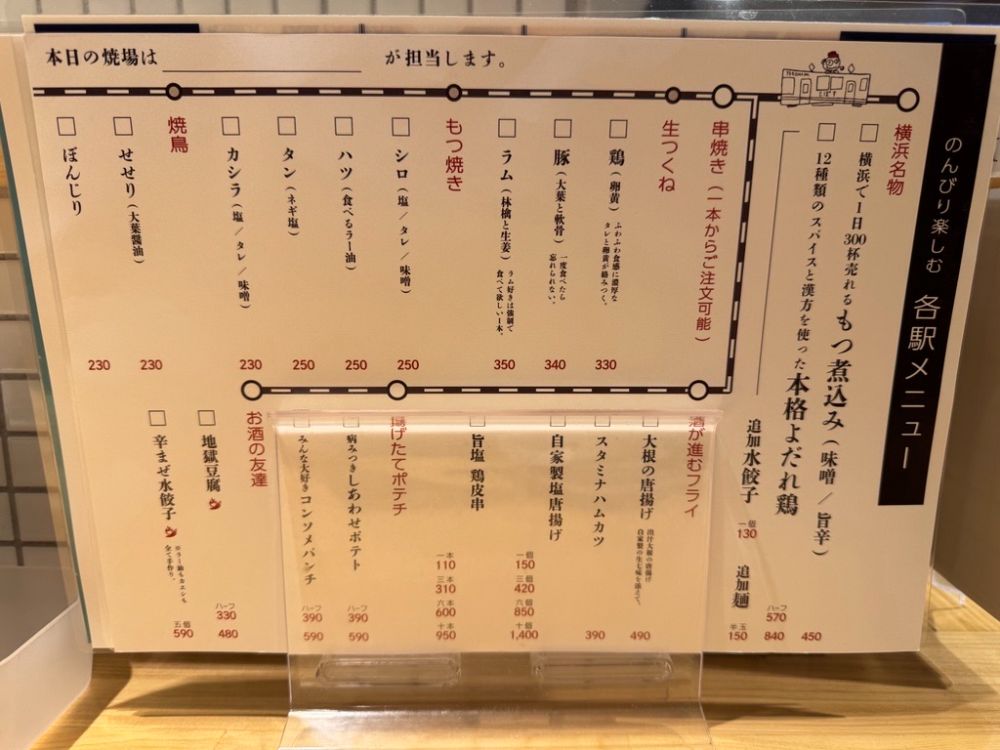 本日の焼場は
が担当します。
のんびり楽しむ 各駅メニュー
横浜名物
横浜で1日300杯売れるもつ煮込み（味噌／旨辛）
450
12種類のスパイスと漢方を使った本格よだれ鶏
ハーフ
570
840
追加水餃子
一個
130
追加麺
半玉
150
串焼き（一本からご注文可能）
生つくね
鶏（卵黄）
ふわふわ食感に濃厚な
タレと卵黄が絡みつく。
330
豚（大葉と軟骨）
一度食べたら
忘れられない。
340
ラム（林檎と生姜）
ラム好きは強制で
食べて欲しい1本。
350
もつ焼き
シロ（塩／タレ／味噌）
250
ハツ（食べるラー油）
250
タン（ネギ塩）
250
カシラ（塩／タレ／味噌）
230
焼鳥
せせり（大葉醤油）
230
ぼんじり
230
酒が進むフライ
大根の唐揚げ
出汁大根の唐揚げ
自家製の生七味を添えて。
490
スタミナハムカツ
390
自家製塩唐揚げ
一個
150
三個
420
六個
850
十個
1,400
旨塩 鶏皮串
一本
110
三本
310
六本
600
十本
950
揚げたてポテチ
病みつきしあわせポテト
ハーフ
390
590
みんな大好きコンソメパンチ
ハーフ
390
590
お酒の友達
地獄豆腐
ハーフ
330
480
辛まぜ水餃子
※ラー油もカエシも
全て手作り。
五個
590